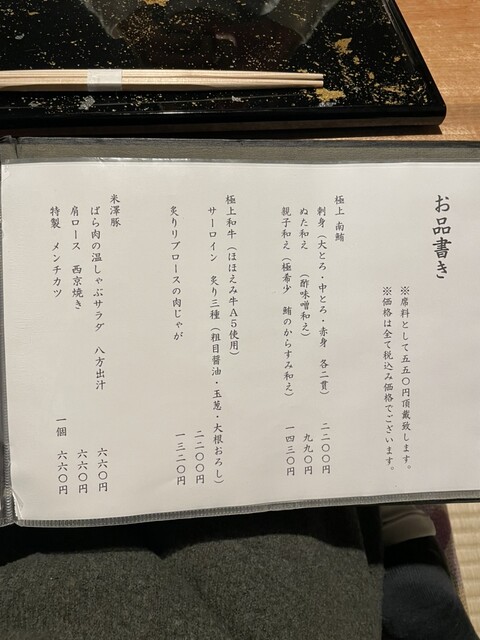 お品書き
※席料として五五〇円頂戴致します。
※価格は全て税込み価格でございます。
極上 南鮪
刺身(大とろ・中とろ・赤身 各二貫) 二二〇〇円
ぬた和え (酢味噌和え) 九九〇円
親子和え(極希少 鮪のからすみ和え) 一四三〇円
極上和牛(ほほえみ牛A5使用)
サーロイン 炙り三種(粗目醤油・玉葱・大根おろし)
二二〇〇円
炙りリブロースの肉じゃが 一三二〇円
米澤豚
ばら肉の温しゃぶサラダ 八方出汁 六六〇円
肩ロース 西京焼き 六六〇円
特製 メンチカツ 一個 六六〇円